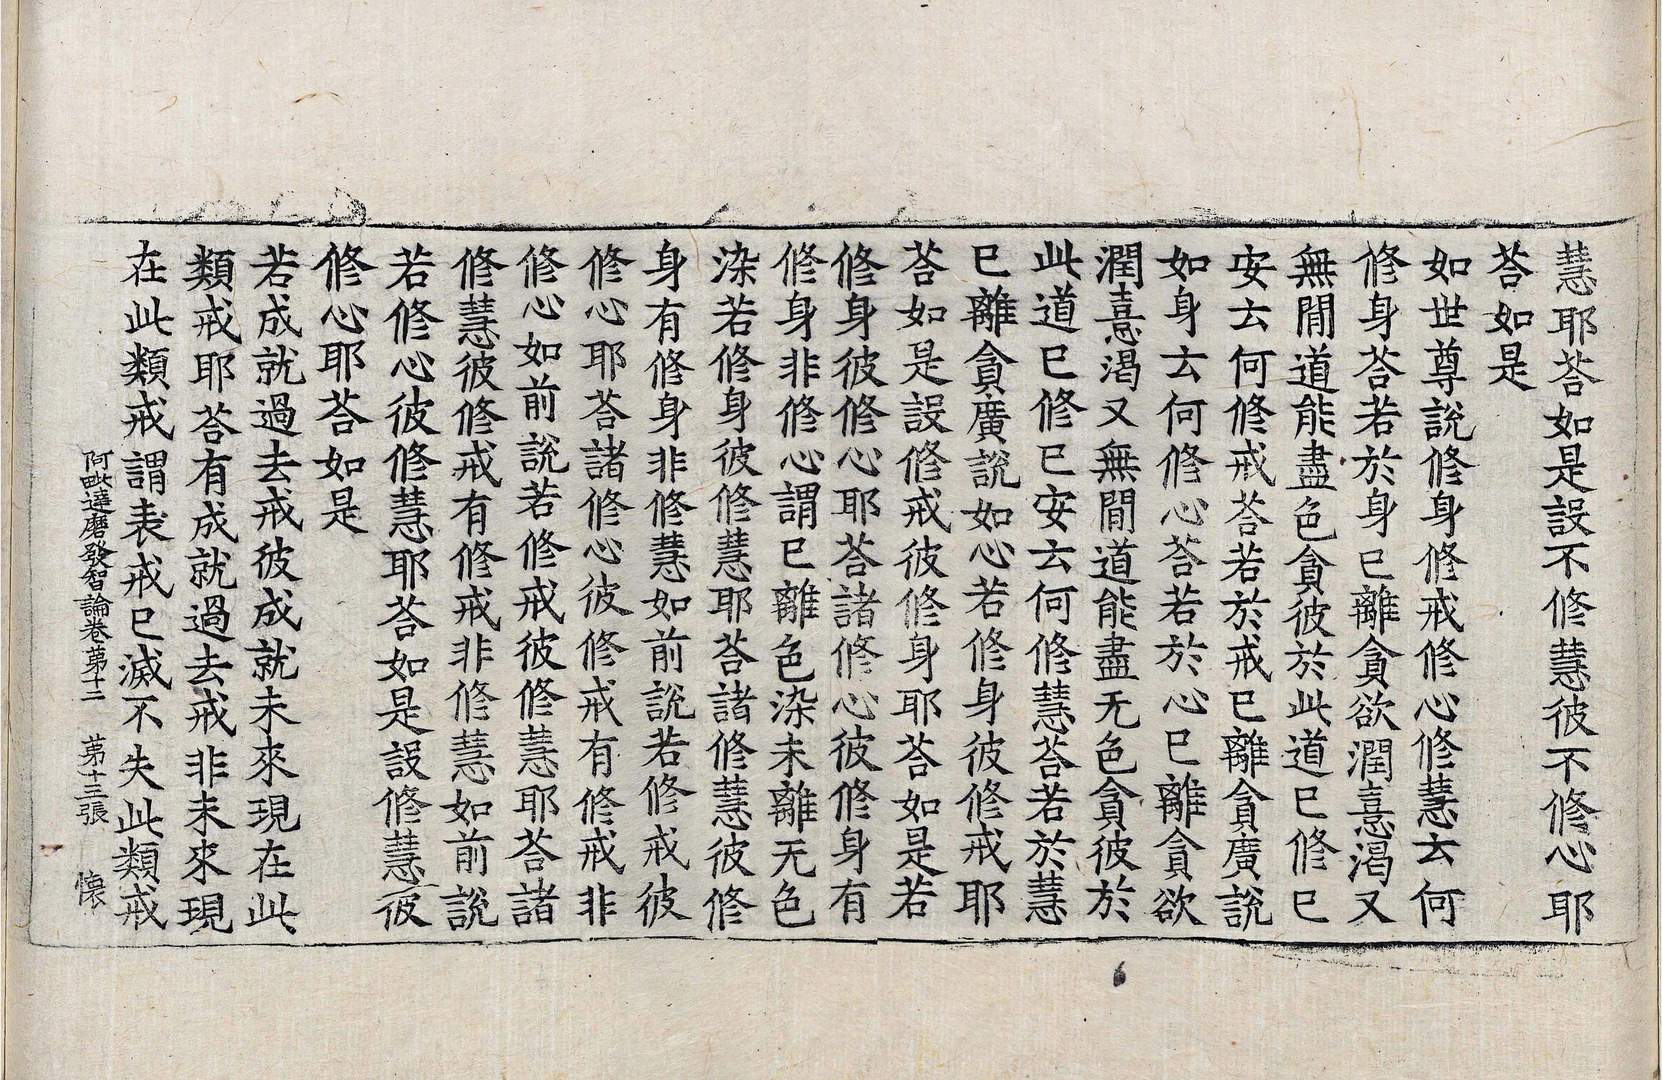 慧耶荅如是設不修慧彼不修心耶
荅如是
如世尊說修身修戒修心修慧云何
修身荅若於身已離貪欲潤憙渴又
無閒道能盡色貪彼於此道已修已
安云何修戒荅若於戒已離貪廣說
如身云何修心荅若於心已離貪欲
潤憙渴又無閒道能盡无色貪彼於
此道已修已安云何修慧荅若於慧
已離貪廣說如心若修身彼修戒耶
荅如是設修戒彼修身耶荅如是若
修身彼修心耶荅諸修心彼修身有
修身非修心謂已離色染未離无色
染若修身彼修慧耶荅諸修慧彼修
身有修身非修慧如前說若修戒彼
修心耶荅諸修心彼修戒有修戒非
修心如前說若修戒彼修慧耶荅諸
修慧彼修戒有修戒非修慧如前說
若修心彼修慧耶荅如是設修慧彼
修心耶荅如是
若成就過去戒彼成就未來現在此
類戒耶荅有成就過去戒非未來現
在此類戒謂表戒已滅不失此類戒
阿毗達磨發智論卷第十二 第十三張 懷